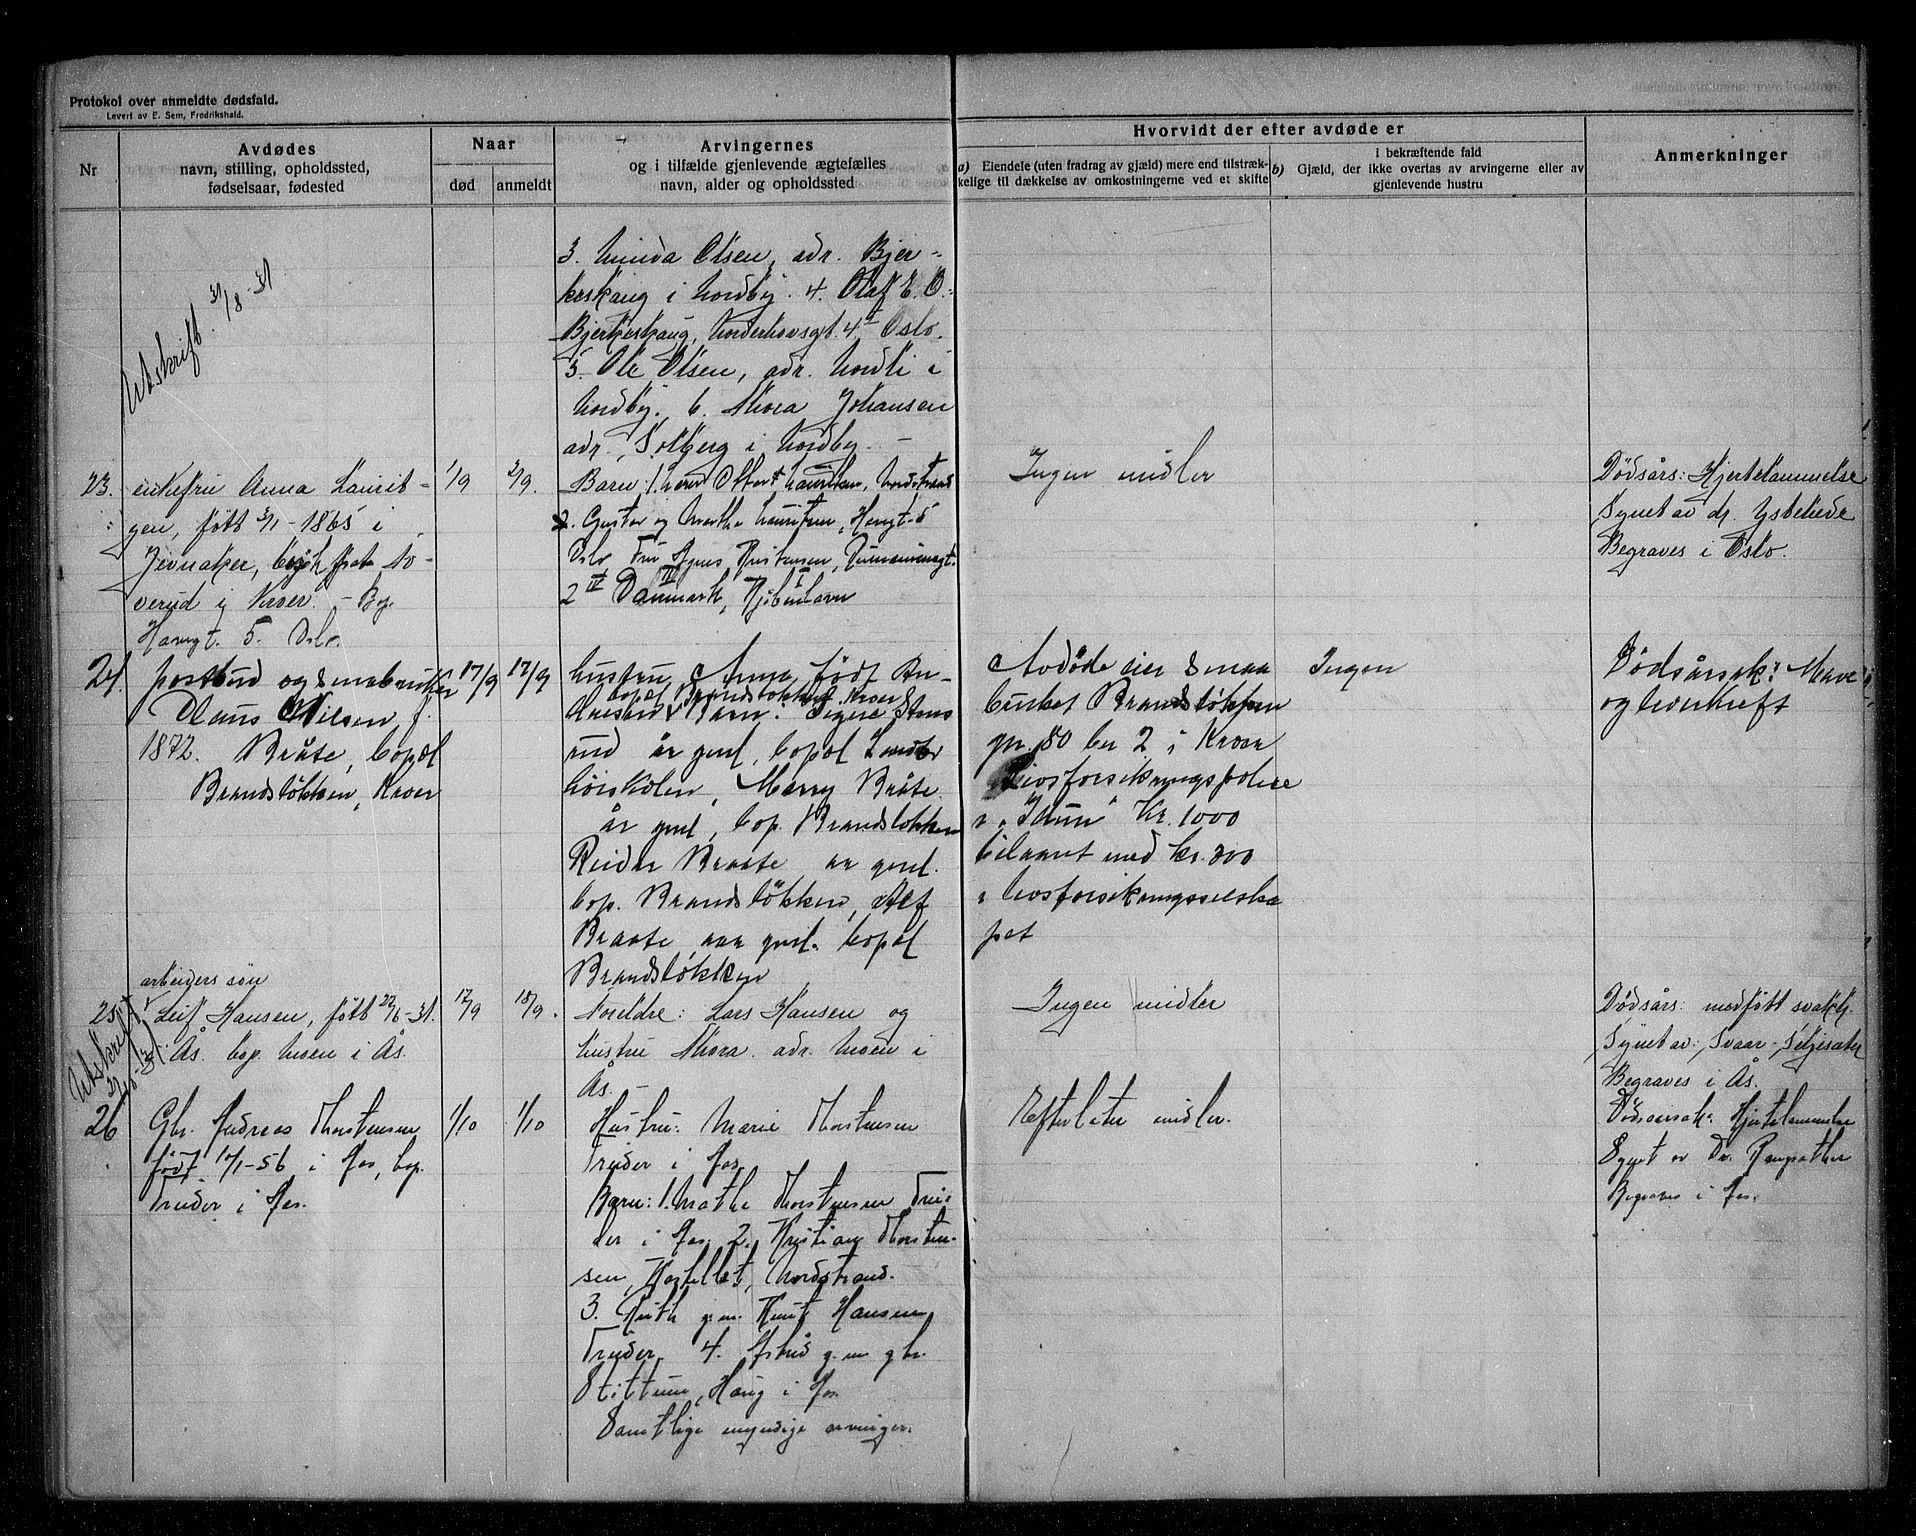 Protokol over anmeldte dødsfald.
Levert av E. Sem, Fredrikshald.
Nr
Avdødes
navn, stilling, opholdssted,
fødselsaar, fødested
Naar
død
anmeldt
Arvingernes
og i tilfælde gjenlevende ægtefælles
navn, alder og opholdssted
Hvorvidt der efter avdøde er
a) Eiendele (uten fradrag av gjæld) mere end tilstræk-
kelige til dækkelse av omkostningerne ved et skifte
i bekræftende fald
b) Gjæld, der ikke overtas av arvingerne eller av
gjenlevende hustru
Anmerkninger
Utskrift. 31/8-31
3. Minda Olsen, adr. Bjer-
keskaug i Nordby. 4. Olaf E. O.
Bjerkeskaug, Norderhovsgt. 4 Oslo.
5. Ole Olsen, adr. Nordli i
Nordby. 6. Thora Johansen
adr. Solberg i Nordby.
23.
enkefru Anna Laurit-
zen, født 3/1-1865 i
Jevnaker,
verud i Kroer. - By.
Haregt. 5. Oslo.
1/9
2/9.
Barn: 1. Lauritzen, Nordstrand
2. Gustav og Martha Lauritzen, 5
Oslo, Fru Agnes Kristensen,
2 IV Danmark, Kjøbenhavn
Ingen midler
Dødsårs: Hjertelammelse
Synet av dr.
Begraves i Oslo.
24.
postbud og småbruker
Claus Nilsen f.
1872. Bråte, bopæl
Brandsløkken, Kroer
17/9
17/9
hustru Anna, født
bopæl Brandsløkken Kroer
Barn: Signe Stens
rud år gml, bopæl Landbr
høiskolen, Marry Bråte
år gml, bop. Brandsløkken
Reidar Braate aar gml.
bop. Brandsløkken, Alf
Braate aar gml. bopæl
Brandsløkken
Avdøde eier smaa
bruket Brandsløkken
gr. 80 br 2 i Kroer
Livsforsikringspolise
i "Idun" Kr. 1000
belaant med kr. 300
i livsforsikringsselska
pet
Ingen
Dødsårsak: Mave
og leverkreft
25.
arbeiders søn
Leif Hansen, født 22/6-31.
Ås. bop. Moen i Ås.
Utskrift
17/9
18/9.
Foreldre: Lars Hansen og
hustru Thora adr. Moen i
Ås.
Ingen midler
Dødsårs: medfødt svakh.
Synet av: Svaar-Seljesæter
Begraves i Ås.
26
Gbr. Andreas Thorstensen
født 10/1-56 i Aas, bop.
Treider i Aas.
1/10
1/10
Hustru: Marie Thorstensen
Treider i Aas
Barn: 1. Mathe Thorstensen Trei-
der i Aas 2. Kristian Thorsten-
sen, Kastellet, Nordstrand.
3. Ruth g.m. Knut Hansen
Treider 4. Astrid g.m. gbr.
Haug i Aas
Samtlige myndige arvinger.
Efterlater midler.
Dødsaarsak: Hjertelammelse
Synet av Dr.
Begraves i Aas.